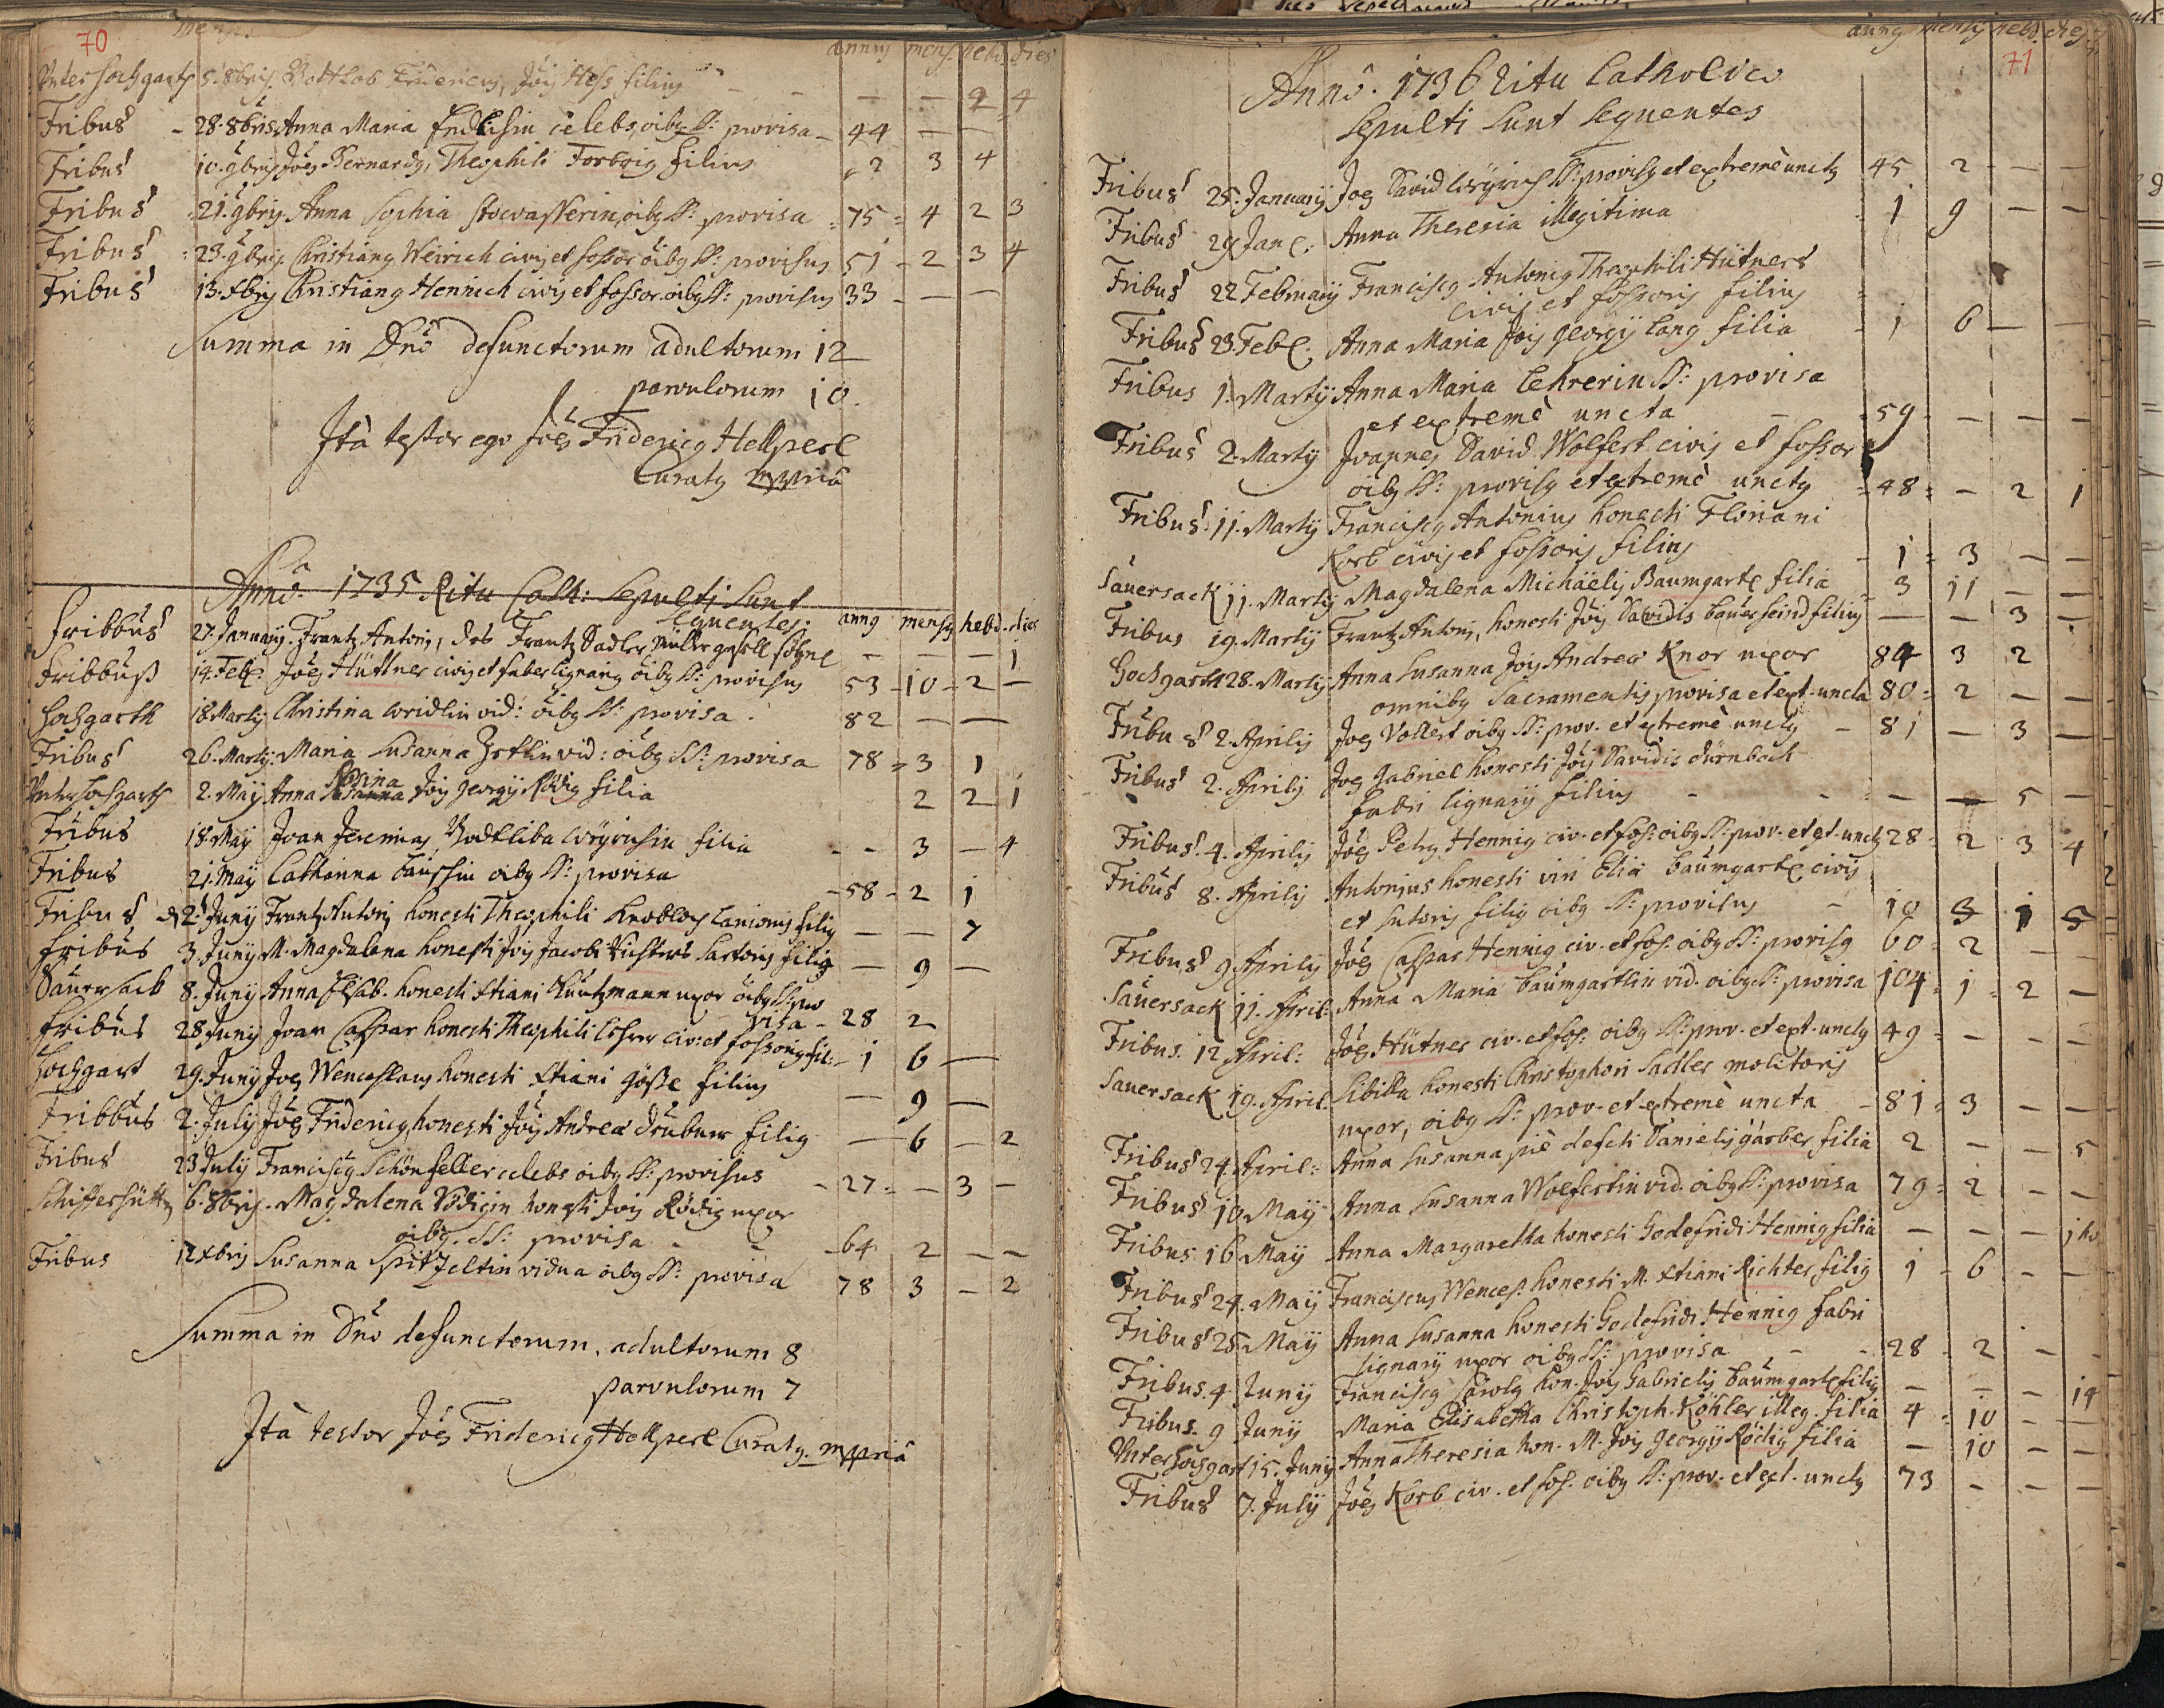 70
mensis
annus mens. hebd. dies
Unter hochgarth 5. 8bris. Gottlob Fridericus, Jois Hess filius - - - - 2 4
Fribus - 28. 8bris. Anna Maria celebs, oibus SS: provisa - 44 - -
Fribus 10. 9bris Joes Bernardus, Theophili filius 2 3 4
Fribus 21. 9bris Anna Sophia Stocvasserin, oibus SS: provisa = 75 = 4 2 3
Fribus 23. 9bris. Christianus Weirich civis et fossor oibus SS: provisus 51 - 2 3 4
Fribus 13. Xbris Christianus Hennich civis et fossor oibus SS: provisus 33 - - -
Summa in Dno defunctorum adultorum 12
parvulorum 10.
Ità testor ego Joes Fridericus Hellperl
Curatus mppriâ
Anno. 1735 Ritu Cath: Sepulti Sunt
Sequentes: annus mensis hebd. dies
Fribbus 27. January. Frantz Antoni, des Frantz Sadler Müller gesell söhnl - - - 1
Fribbuß 14. Feb. Joes Hüttner civis et faber lignarius oibus SS: provisus 53 - 10 - 2 -
Hochgarth 18 Marty Christina wridlin vid: oibus SS: provisa. 82 - -
Fribus 26. Marty: Maria Susanna vid: oibus SS: provisa 78 = 3 1
Rosina
Unterhochgarth 2. May Anna Susanna Jois Georgy Rödig filia 2 2 1
Fribus 18. May Joan Jeremias filia - - 3 - 4
Fribus 21. May Catharina oibus SS: provisa - 58 - 2 1
Fribus 2. Juny Frantz Antoni honesti Theophili Knobloch lanionis filius - - 7
Fribus 3 Juny M. Magdalena honesti Jois Jacobi Richters Sartoris filia - 9 -
Sauersack 8. Juny Anna Elisab. honesti Xtiani Kuntzmann uxor oibus SS: pro
visa - 28 2
Fribus 28 Juny Joan Caspar honesti Theophili Löhrer civ: et fossoris fil: - 1 6 -
Hochgart 29. Juny Joes Wenceslaus honesti Xtiani Göße filius - 9 -
Fribbus 2. July Joes Fridericus, honesti Jois Andreæ filius - 6 - 2
Fribus 23 July Franciscus Schönfeller celebs oibus SS: provisus - 27 = - 3 -
Schifferhütt 6. 8bris. Magdalena Rödigin honesti Jois Rödig uxor
oibus. SS: provisa - - - 64 2 - -
Fribus 12 Xbris Susanna Spitzeltin vidua oibus SS: provisa 78 3 - 2
Summa in Dno defunctorum, adultorum 8
parvulorum 7
Ità testor Joes Fridericus Hellperl Curatus. mppriâ
annus mensis hebd. dies
71
Anno. 1736 Ritu Catholico
Sepulti Sunt Sequentes
Fribus 25. January Joes David SS: provisus et extremè unctus 45 2 - -
Fribus 29 Jan. Anna Theresia illegitima 1 9 - -
Fribus 22 February Franciscus Antonius Theophili Hütners
civis et fossoris filius
Fribus 23. Feb. Anna Maria Jois Georgy Lang filia - 1 6 - -
Fribus 1. Marty Anna Maria Lehrerin SS: provisa
et extremè uncta - 59 - - -
Fribus 2. Marty Joannes David Wolfert civis et fossor
oibus SS: provisus et extremè unctus = 48 = - 2 1
Fribus. 11. Marty Franciscus Antonius honesti Floriani
Korb civis et fossoris filius - 1 = 3 - -
Sauersack 11. Marty Magdalena Michäelis Baumgartl filia - 3 11 - -
Fribus 19. Marty Frantz Antoni, honesti Jois Davidis Bauerfeind filius - - 3 -
Hochgarth 28. Marty Anna Susanna Jois Andreæ Knor uxor 84 3 2
omnibus Sacramentis provisa et ext. uncta 80 = 2 - -
Fribus 2. Aprilis Joes Vollert oibus SS: prov. et extremè unctus - 81 - 3 -
Fribus 2. Aprilis Joes Gabriel honesti Jois Davidis Dürnbach
fabri lignary filius - - - - 5 -
Fribus. 4. Aprilis Joes Petrus Hennig civ. et fos: oibus SS: prov. et ext. unctus 28 = 2 3 4
Fribus 8. Aprilis Antonius honesti viri Eliæ Baumgartl civis
et sutoris filius oibus SS: provisus - 10 3 1 5
Fribus 9. Aprilis Joes Caspar Hennig civ. et fos. oibus SS: provisus 60 = 2 - -
Sauersack 11. April: Anna Maria Baumgartlin vid. oibus SS: provisa 104 = 1 = 2 -
Fribus. 12 April: Joes Hütner civ. et fos. oibus SS: prov. et ext. unctus 49 = - - -
Sauersack 19. April: Sibilla honesti Christophori Sadler molitoris
uxor, oibus SS: prov. et extremè uncta - 81 = 3 - -
Fribus 24. April: Anna Susanna piè defcti Danielis gärber filia 2 - - 5
Fribus 10. May Anna Susanna Wolfertin vid. oibus SS: provisa 79 = 2 - -
Fribus. 16 May Anna Margaretha honesti Godefridi Hennig filia - - - 1 ho
Fribus 24. May Franciscus Wences. honesti M. Xtiani Richter filius 1 - 6 - -
Fribus 25 May Anna Susanna honesti Godefridi Hennig fabri
lignary uxor oibus SS: provisa - - 28 = 2 - -
Fribus. 4 Juny Franciscus Carolus hon. Jois Gabrielis Baumgartl filius - - - 14
Fribus. 9 Juny Maria Elisabetha Christoph. Köhler illeg. filia 4 = 10 - -
Unterhochgart 15. Juny Anna Theresia hon. M. Jois Georgy Rödig filia - 10 - -
Fribus 7. July Joes Korb civ. et fos. oibus SS: prov. et ext. unctus 73 - - -